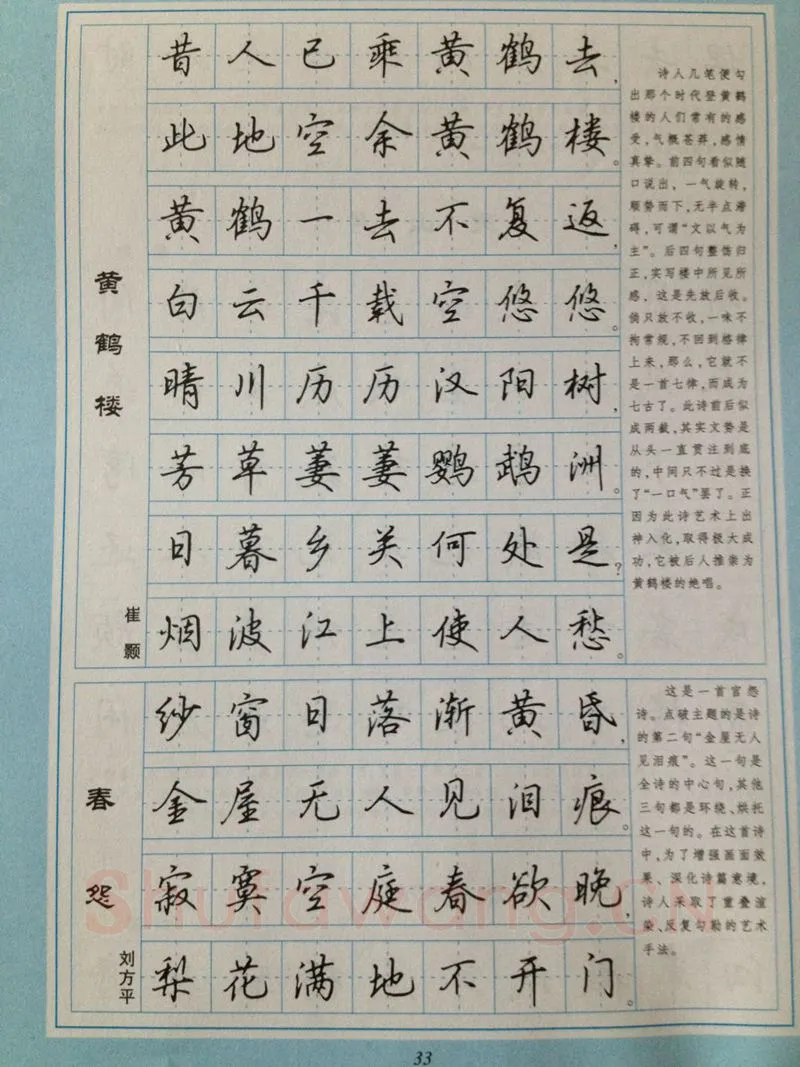 黄鹤楼
崔颢
昔人已乘黄鹤去，
此地空余黄鹤楼。
黄鹤一去不复返，
白云千载空悠悠。
晴川历历汉阳树，
芳草萋萋鹦鹉洲。
日暮乡关何处是？
烟波江上使人愁。
诗人几笔便勾
出那个时代登黄鹤
楼的人们常有的感
受，气概苍莽，感情
真挚。前四句看似随
口说出，一气旋转，
顺势而下，无半点滞
碍，可谓“文以气为
主”。后四句整饬归
正，实写楼中所见所
感，这是先放后收。
倘只放不收，一味不
拘常规，不回到格律
上来，那么，它就不
是一首七律，而成为
七古了。此诗前后似
成两截，其实文势是
从头一直贯注到底
的，中间只不过是换
了“一口气”罢了。正
因为此诗艺术上出
神入化，取得极大成
功，它被后人推崇为
黄鹤楼的绝唱。
春怨
刘方平
纱窗日落渐黄昏，
金屋无人见泪痕。
寂寞空庭春欲晚，
梨花满地不开门。
这是一首宫怨
诗。点破主题的是诗
的第二句“金屋无人
见泪痕”。这一句是
全诗的中心句，其他
三句都是环绕、烘托
这一句的。在这首诗
中，为了增强画面效
果、深化诗篇意境，
诗人采取了重叠渲
染、反复勾勒的艺术
手法。
shufawang.CN
33